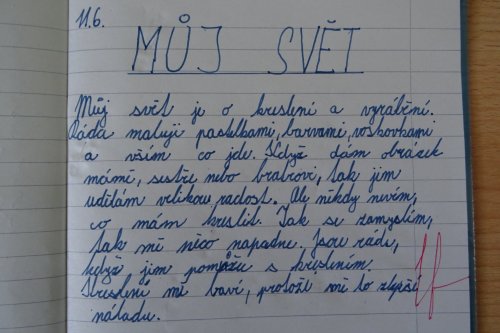 11.6.
MŮJ SVĚT
Můj svět je o kreslení a vyrábění.
Ráda maluji pastelkami, barvami, voskovkami
a vším co jde. Když dám obrázek
mámě, sestře nebo bratrovi, tak jim
udělám velikou radost. Ale někdy nevím,
co mám kreslit. Tak se zamyslím,
tak mě něco napadne. Jsou rádi,
když jim pomůže s kreslením.
Kreslení mě baví, protože mě to zlepší
náladu.